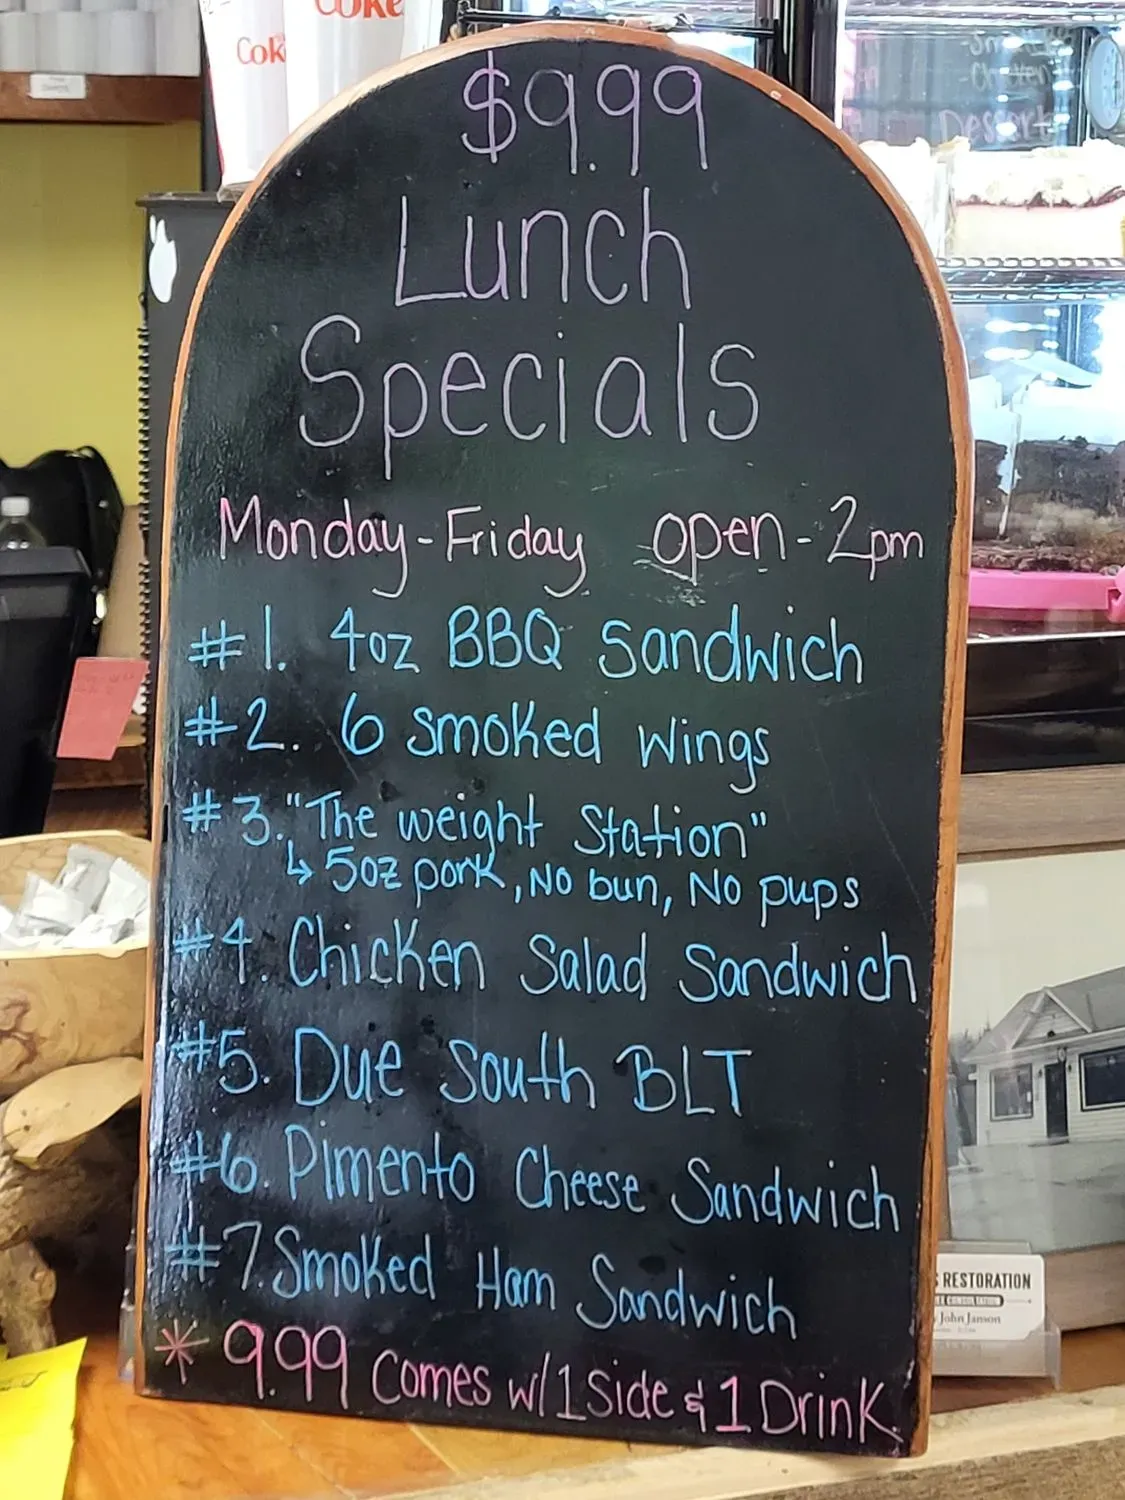 COKE
Coke
$9.99
Lunch
Specials
Monday-Friday open-2pm
#1. 4oz BBQ Sandwich
#2. 6 smoked wings
#3. "The weight Station"
↳ 5oz pork, No bun, No pups
#4. Chicken Salad Sandwich
#5. Due South BLT
#6. Pimento Cheese Sandwich
#7. Smoked Ham Sandwich
* 9.99 Comes w/ 1 Side & 1 Drink
Dessert
RESTORATION
John Janson